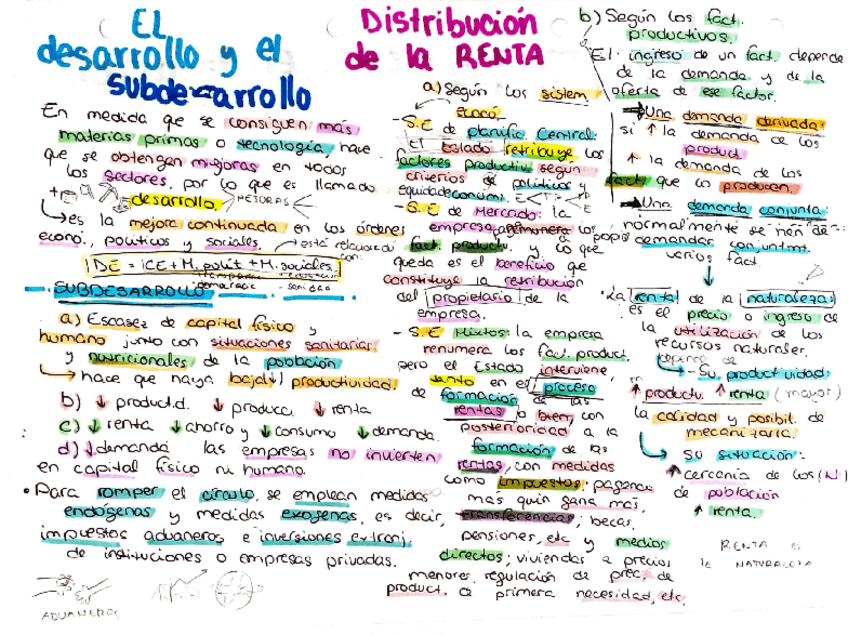 EL
desarrollo y el
subdesarrollo
En medida que se consiguen más
materias primas o tecnología, hace
que se obtengan mejoras en todos
los sectores, por lo que es llamado
desarrollo. MEJORAS
es la mejora continuada en los órdenes
econó., políticos y sociales. está relacionado
con:
DE = ICE + M. polít + M. sociales.
democracic - sanidad
SUBDESARROLLO
a) Escasez de capital físico y
humano junto con situaciones sanitarias
y nutricionales de la población
hace que haya baja ↓ productividad.
b) ↓ product.d. ↓ producc. ↓ renta
c) ↓ renta ↓ ahorro y ↓ consumo ↓ demanda.
d) ↓ demanda las empresas no invierten
en capital físico ni humano.
• Para romper el círculo, se emplean medidas
endógenas y medidas exógenas, es decir,
impuestos aduaneros e inversiones extranj.
de instituciones o empresas privadas.
ADUANEROS
Distribución
de la RENTA
a) Según los sistem
econó.
- S.E de planific Central:
El Estado retribuye los
factores productiv según
criterios de políticos y
equidad económi.
- S.E de Mercado: la
empresa remunera los
fact. product. y lo que
queda es el beneficio que
constituye la retribución
del propietario de la
empresa.
- S.E Mixtos: la empresa
renumera los fact. product.
pero el Estado interviene,
tanto en el proceso
de formación de las
rentas o bien, con
posterioridad a la
formación de las
rentas, con medidas
como impuestos: pagando
más quin gana más
transferencias; becas,
pensiones, etc y medios
directos; viviendas a precios
menores, regulación de prec. de
product. de primera necesidad, etc.
b) Según los fact.
productivos.
El ingreso de un fact. depende
de la demanda y de la
oferta de ese factor.
Una demanda derivada:
si ↑ la demanda de los
product.
↑ la demanda de los
fact. que lo producen.
Una demanda conjunta:
normalmente se han de
demandar conjuntmt.
varios fact
• La renta de la naturaleza:
es el precio o ingreso de
la utilización de los
recursos naturales.
depende de
- Su productividad:
↑ productv. ↑ renta (mayor)
la calidad y posibil. de
mecanizarla.
su situación:
↑ cercanía de los (N)
de población
↑ renta.
RENTA
la NATURALEZA